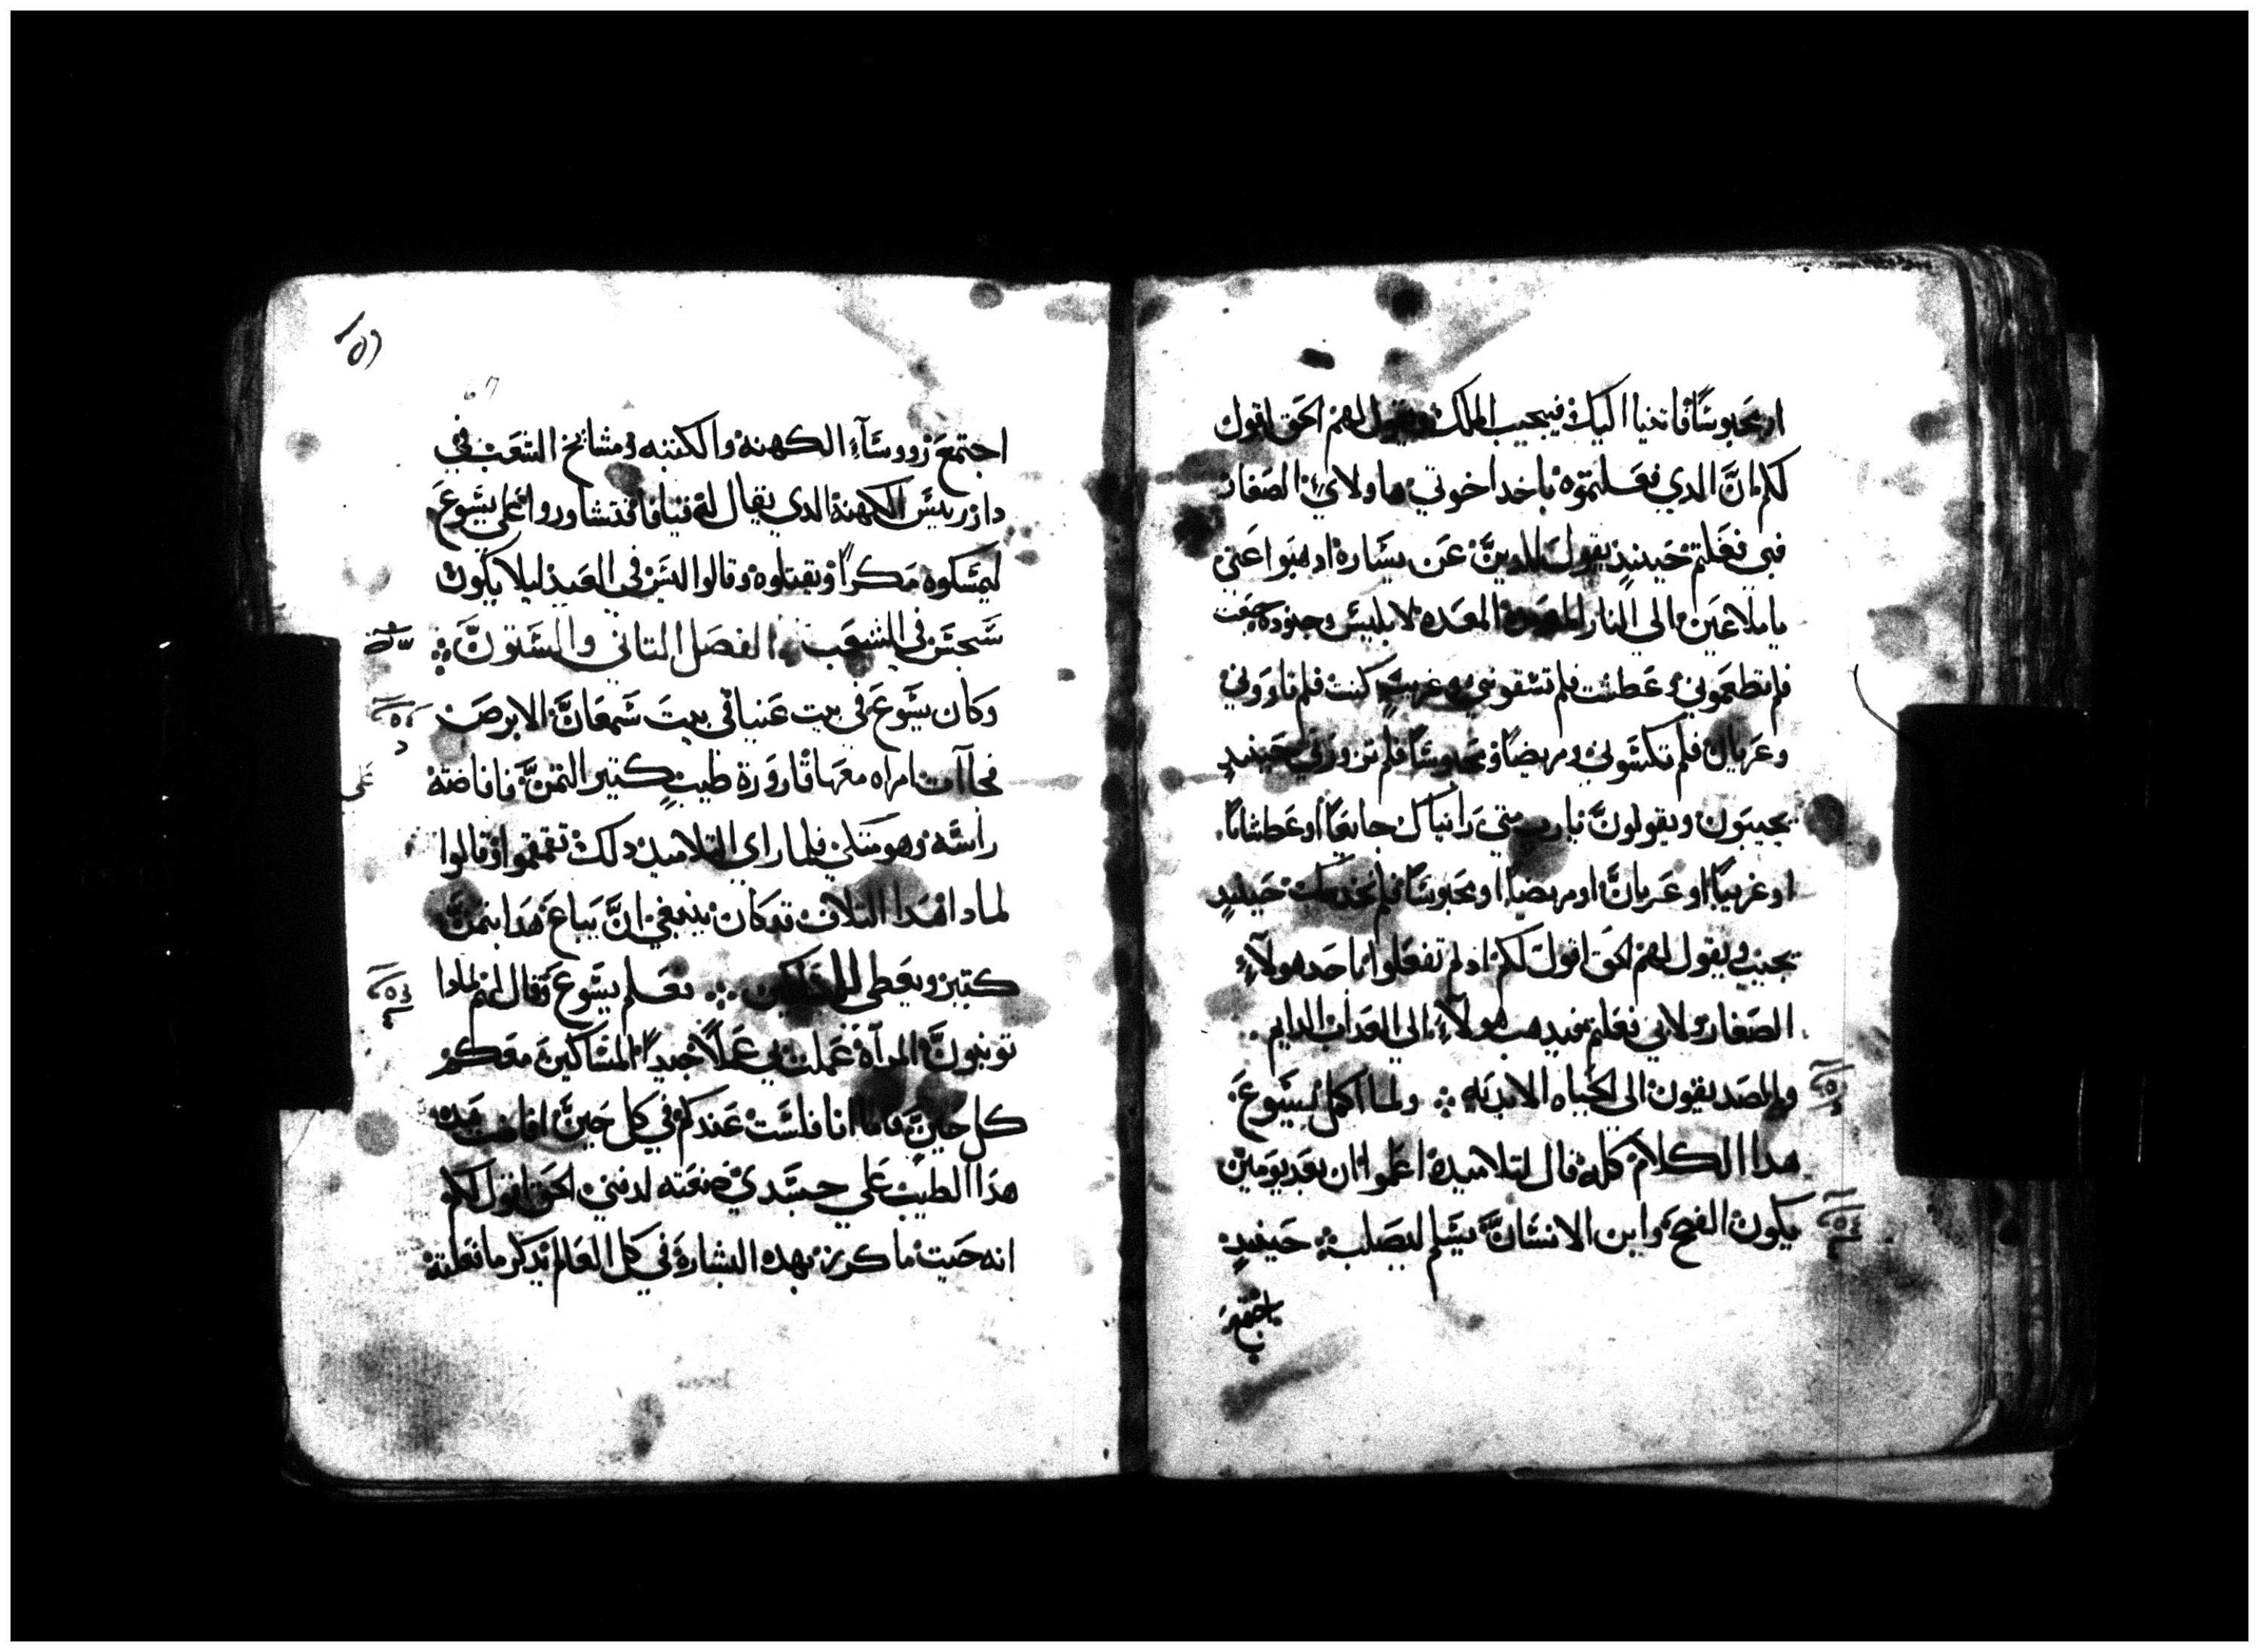 او محبوسًا فاتينا اليك فيجيب الملك ويقول لهم الحق اقول
لكم ان الدي فعلتموه باحد اخوتي هاولاي الصغار
فبي فعلتم حينيدٍ يقول للدين عن يساره ادهبوا عني
يا ملاعين الي النار المعده لابليس وجنوده جعت
فلم تطعموني وعطشت فلم تسقوني وغريبٍ كنت فلم تاووني
وعريان فلم تكسوني ومريضًا ومحبوسًا فلم تزوروني حينيدٍ
يجيبون ويقولون يارب متي راياك جايعًا او عطشانًا
او غريبًا او عريان او مريضًا او محبوسًا فلم نخدمك حينيدٍ
يجيب ويقول لهم الحق اقول لكم اد لم تفعلوا باحد هولآءِ
الصغار ولابي فعلتم فيدهب هولآءِ الي العداب الدايم
والصديقون الي الحياه الابديه ولما اكمل يسوع
هدا الكلام كله قال لتلاميده اعلموا ان بعد يومين
يكون الفصح وابن الانسان يسلم ليصلب حينيدٍ
اجتمع
اجتمع رووسآء الكهنه والكتبه ومشايخ الشعب في
دار رييس الكهنه الدي يقال له قيافا فتشاوروا علي يسوع
ليمسكوه مكرًا ويقتلوه وقالوا ليس في العيد ليلا يكون
سجس في الشعب الفصل التاني والستون
وكان يسوع في بيت عنيا في بيت سمعان الابرص
فجآات امراه معها قارورة طيبٍ كتير التمن فافاضته
علي
راسه وهو متكي فلما راي التلاميد دلك تقمقموا وقالوا
لمادا هدا التلاف قد كان ينبغي ان يباع هدا بتمن
كتير ويعطي للمساكين فعلم يسوع وقال لهم لمادا
توبنون المرآة عملت بي عملًا جيدًا المساكين معكم
كل حين فاما انا فلست عندكم في كل حين افاضت هده
هدا الطيب علي جسدي صنعته لدفني الحق اقول لكم
انه حيت ما كرز بهده البشارة في كل العالم يدكر ما فعلته